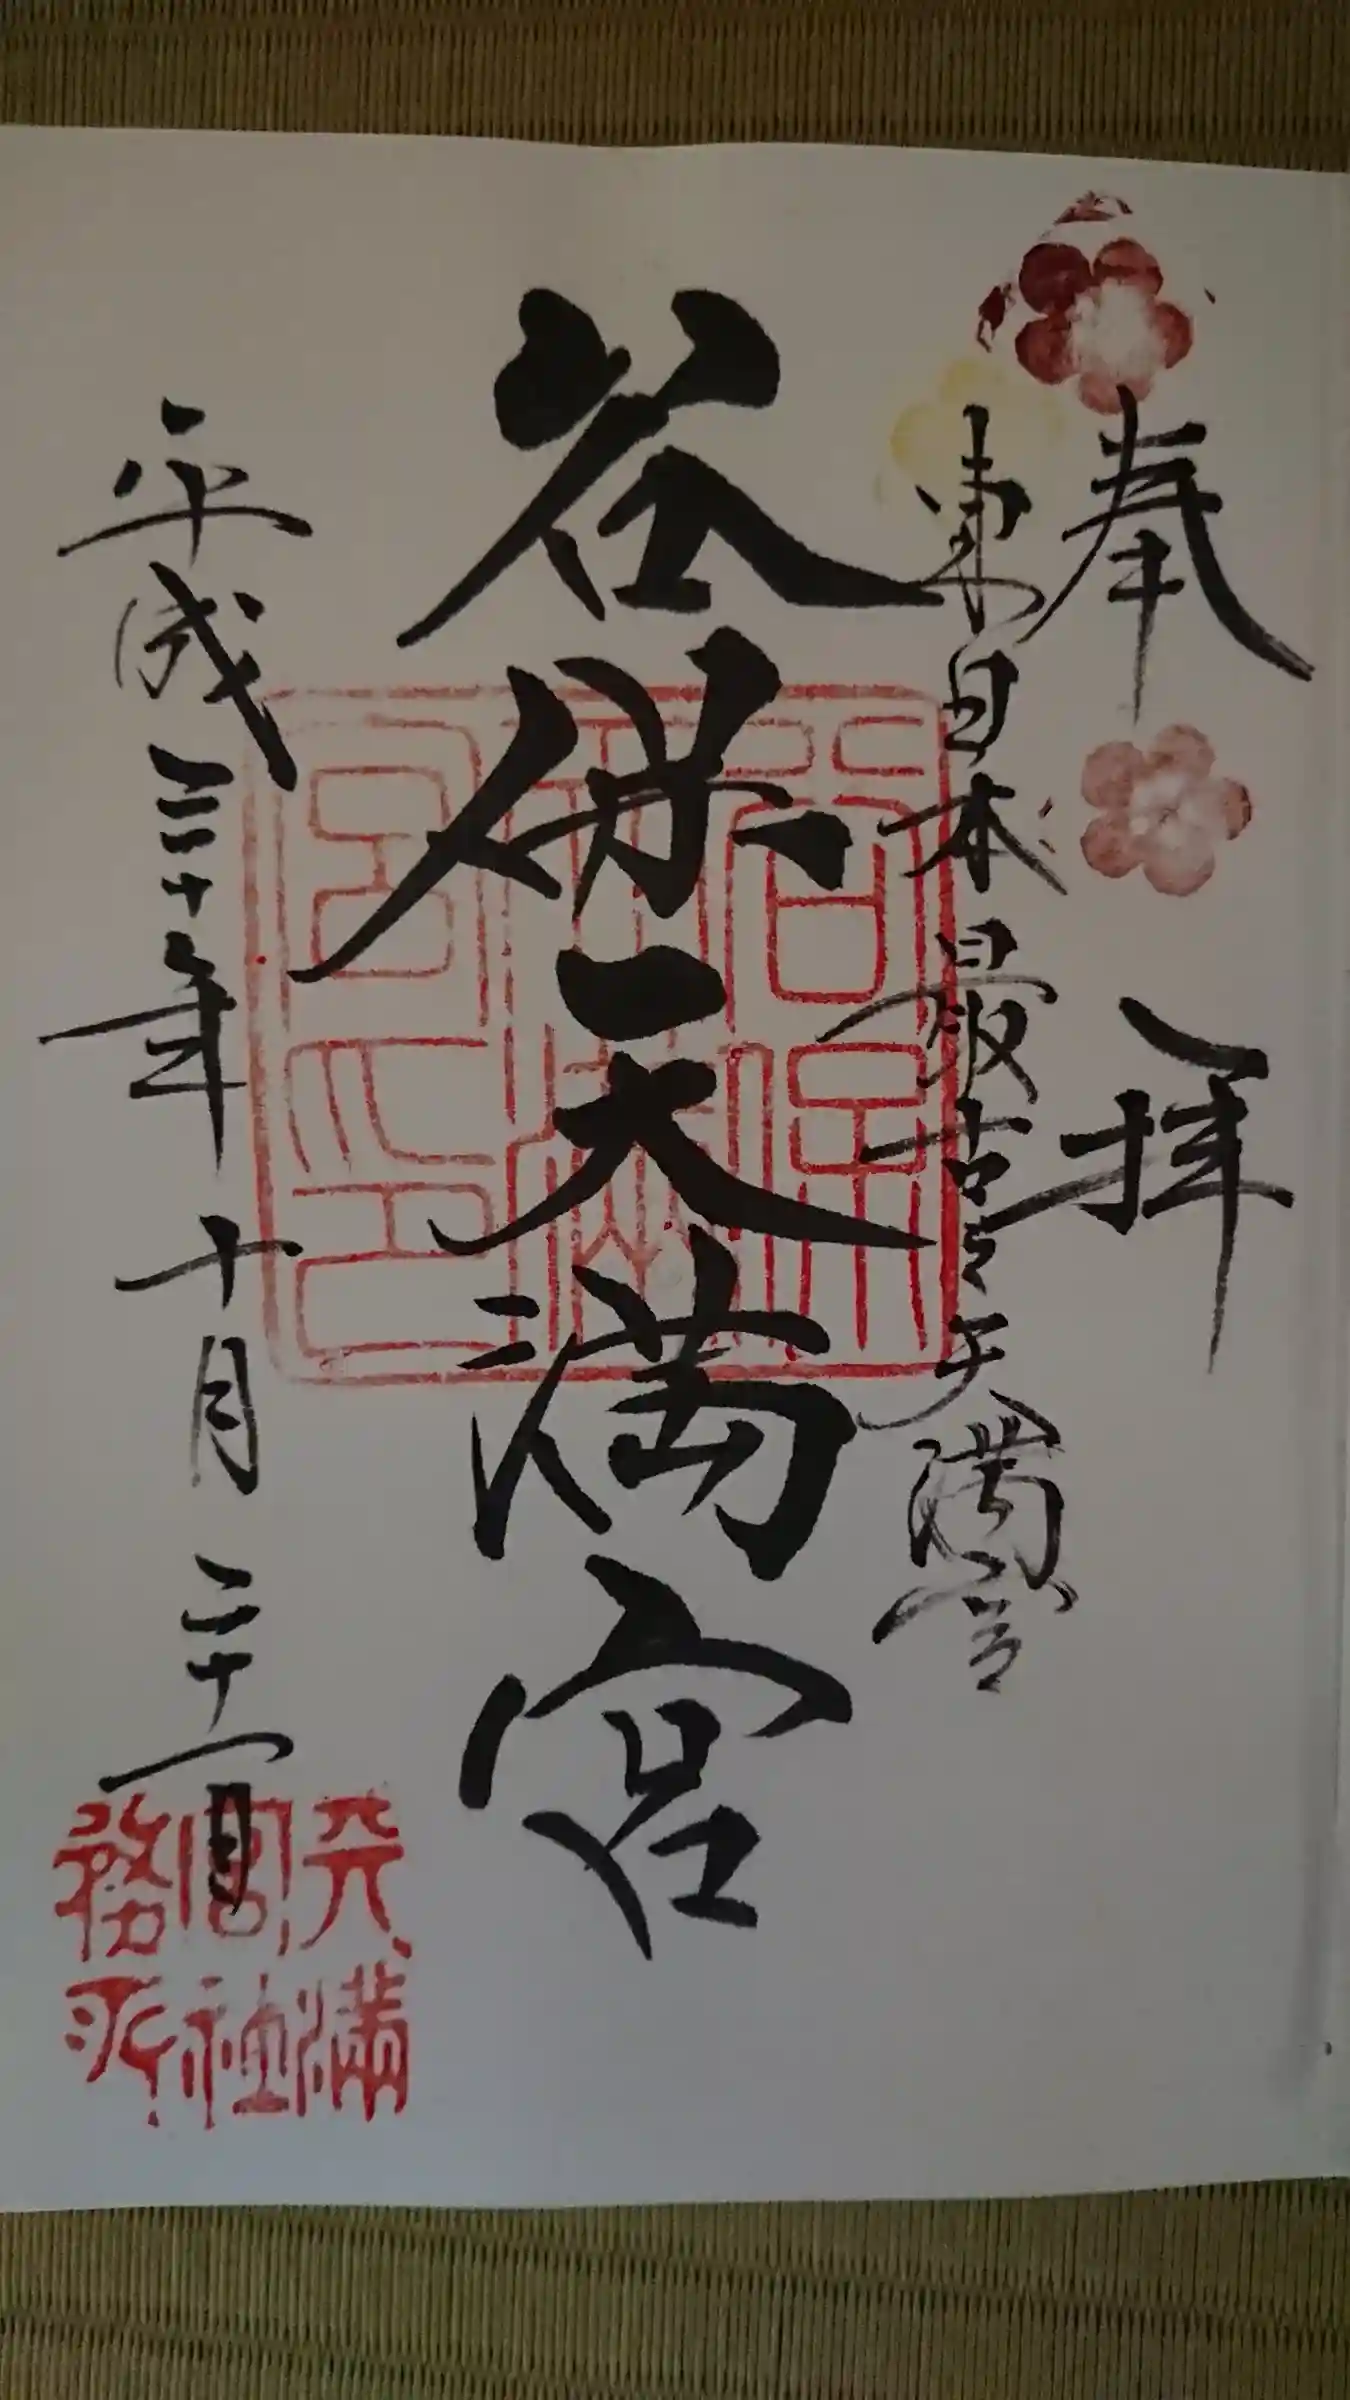 奉拝
東日本最古之天満宮
谷保天満宮
平成三十年十月二十一日
谷保天満宮印
天満宮社務所